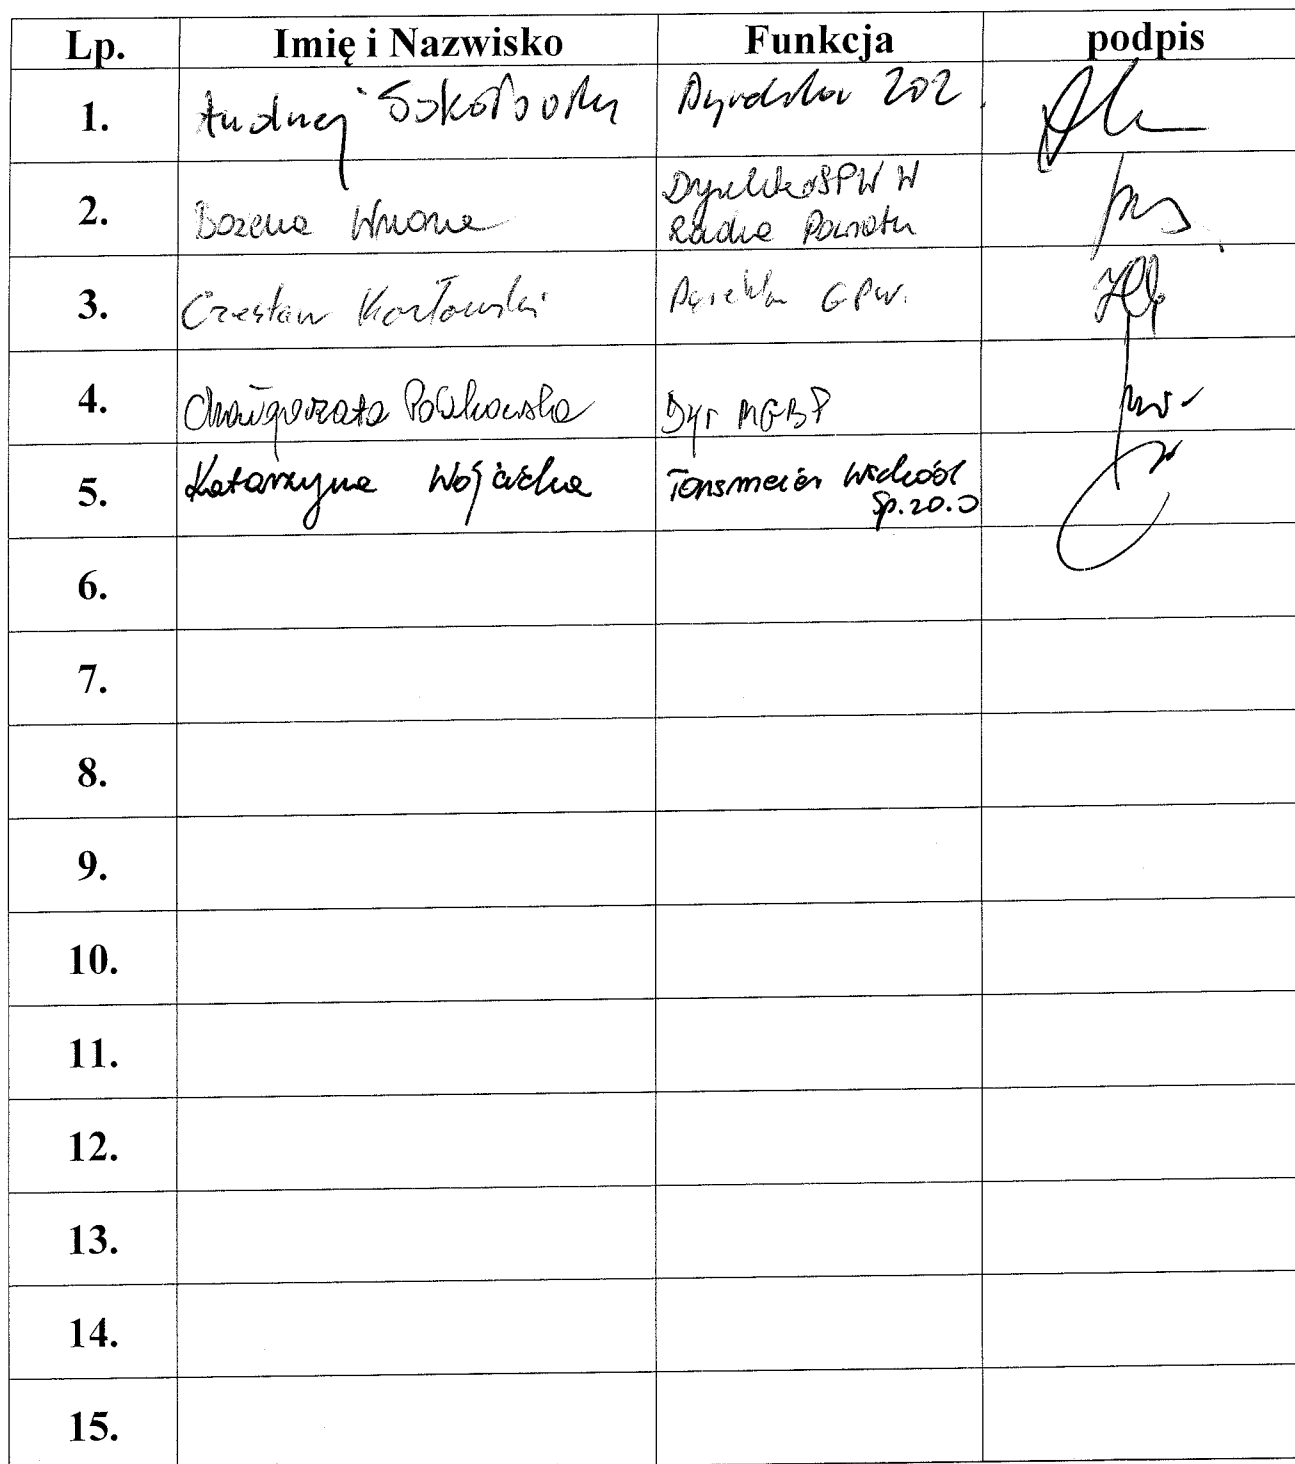 Lp. Imię i Nazwisko Funkcja podpis
1. Andrzej Dyrektor ZOZ
2. Bożena Wrona Dyrektor SPW W
Radna Powiatu
3. Czesław Kozłowski Dyrektor GPW.
4. Małgorzata Dyr MGBP
5. Katarzyna Wójcicka Tonsmeier Wschód
Sp. z o.o
6.
7.
8.
9.
10.
11.
12.
13.
14.
15.